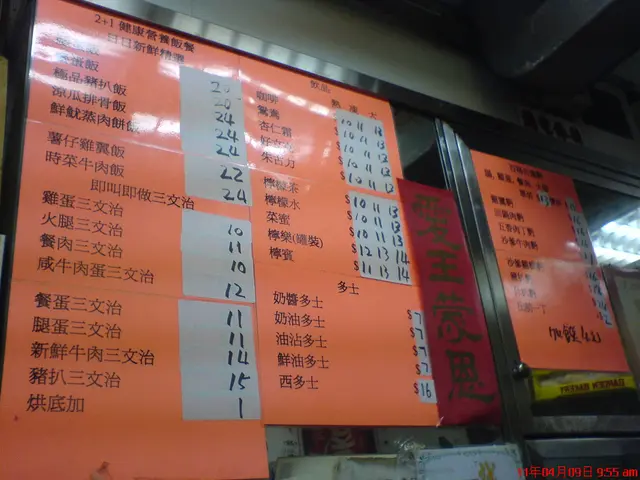 2+1 健康營養飯餐
日日新鮮精選
極品豬扒飯 24
涼瓜排骨飯 24
鮮魷蒸肉餅飯 24
薯仔雞翼飯 22
時菜牛肉飯 24
即叫即做三文治
雞蛋三文治 10
火腿三文治 11
餐肉三文治 10
咸牛肉蛋三文治 12
餐蛋三文治 11
腿蛋三文治 11
新鮮牛肉三文治 14
豬扒三文治 15
烘底加 1
飲品
熱 凍 大
咖啡 $10 11 13
鴛鴦 $10 11 13
杏仁霜 $10 11 13
好立克 $10 11 13
朱古力 $10 11 13
檸檬茶 $10 11 13
檸檬水 $10 11 13
菜蜜 $10 11 13
檸樂(罐裝) $12 13 14
檸賓 $11 13 14
多士
奶醬多士 $7
奶油多士 $7
油沾多士 $7
鮮油多士 $7
西多士 $16
愛王蒙恩
11年04月09日 9:55 am